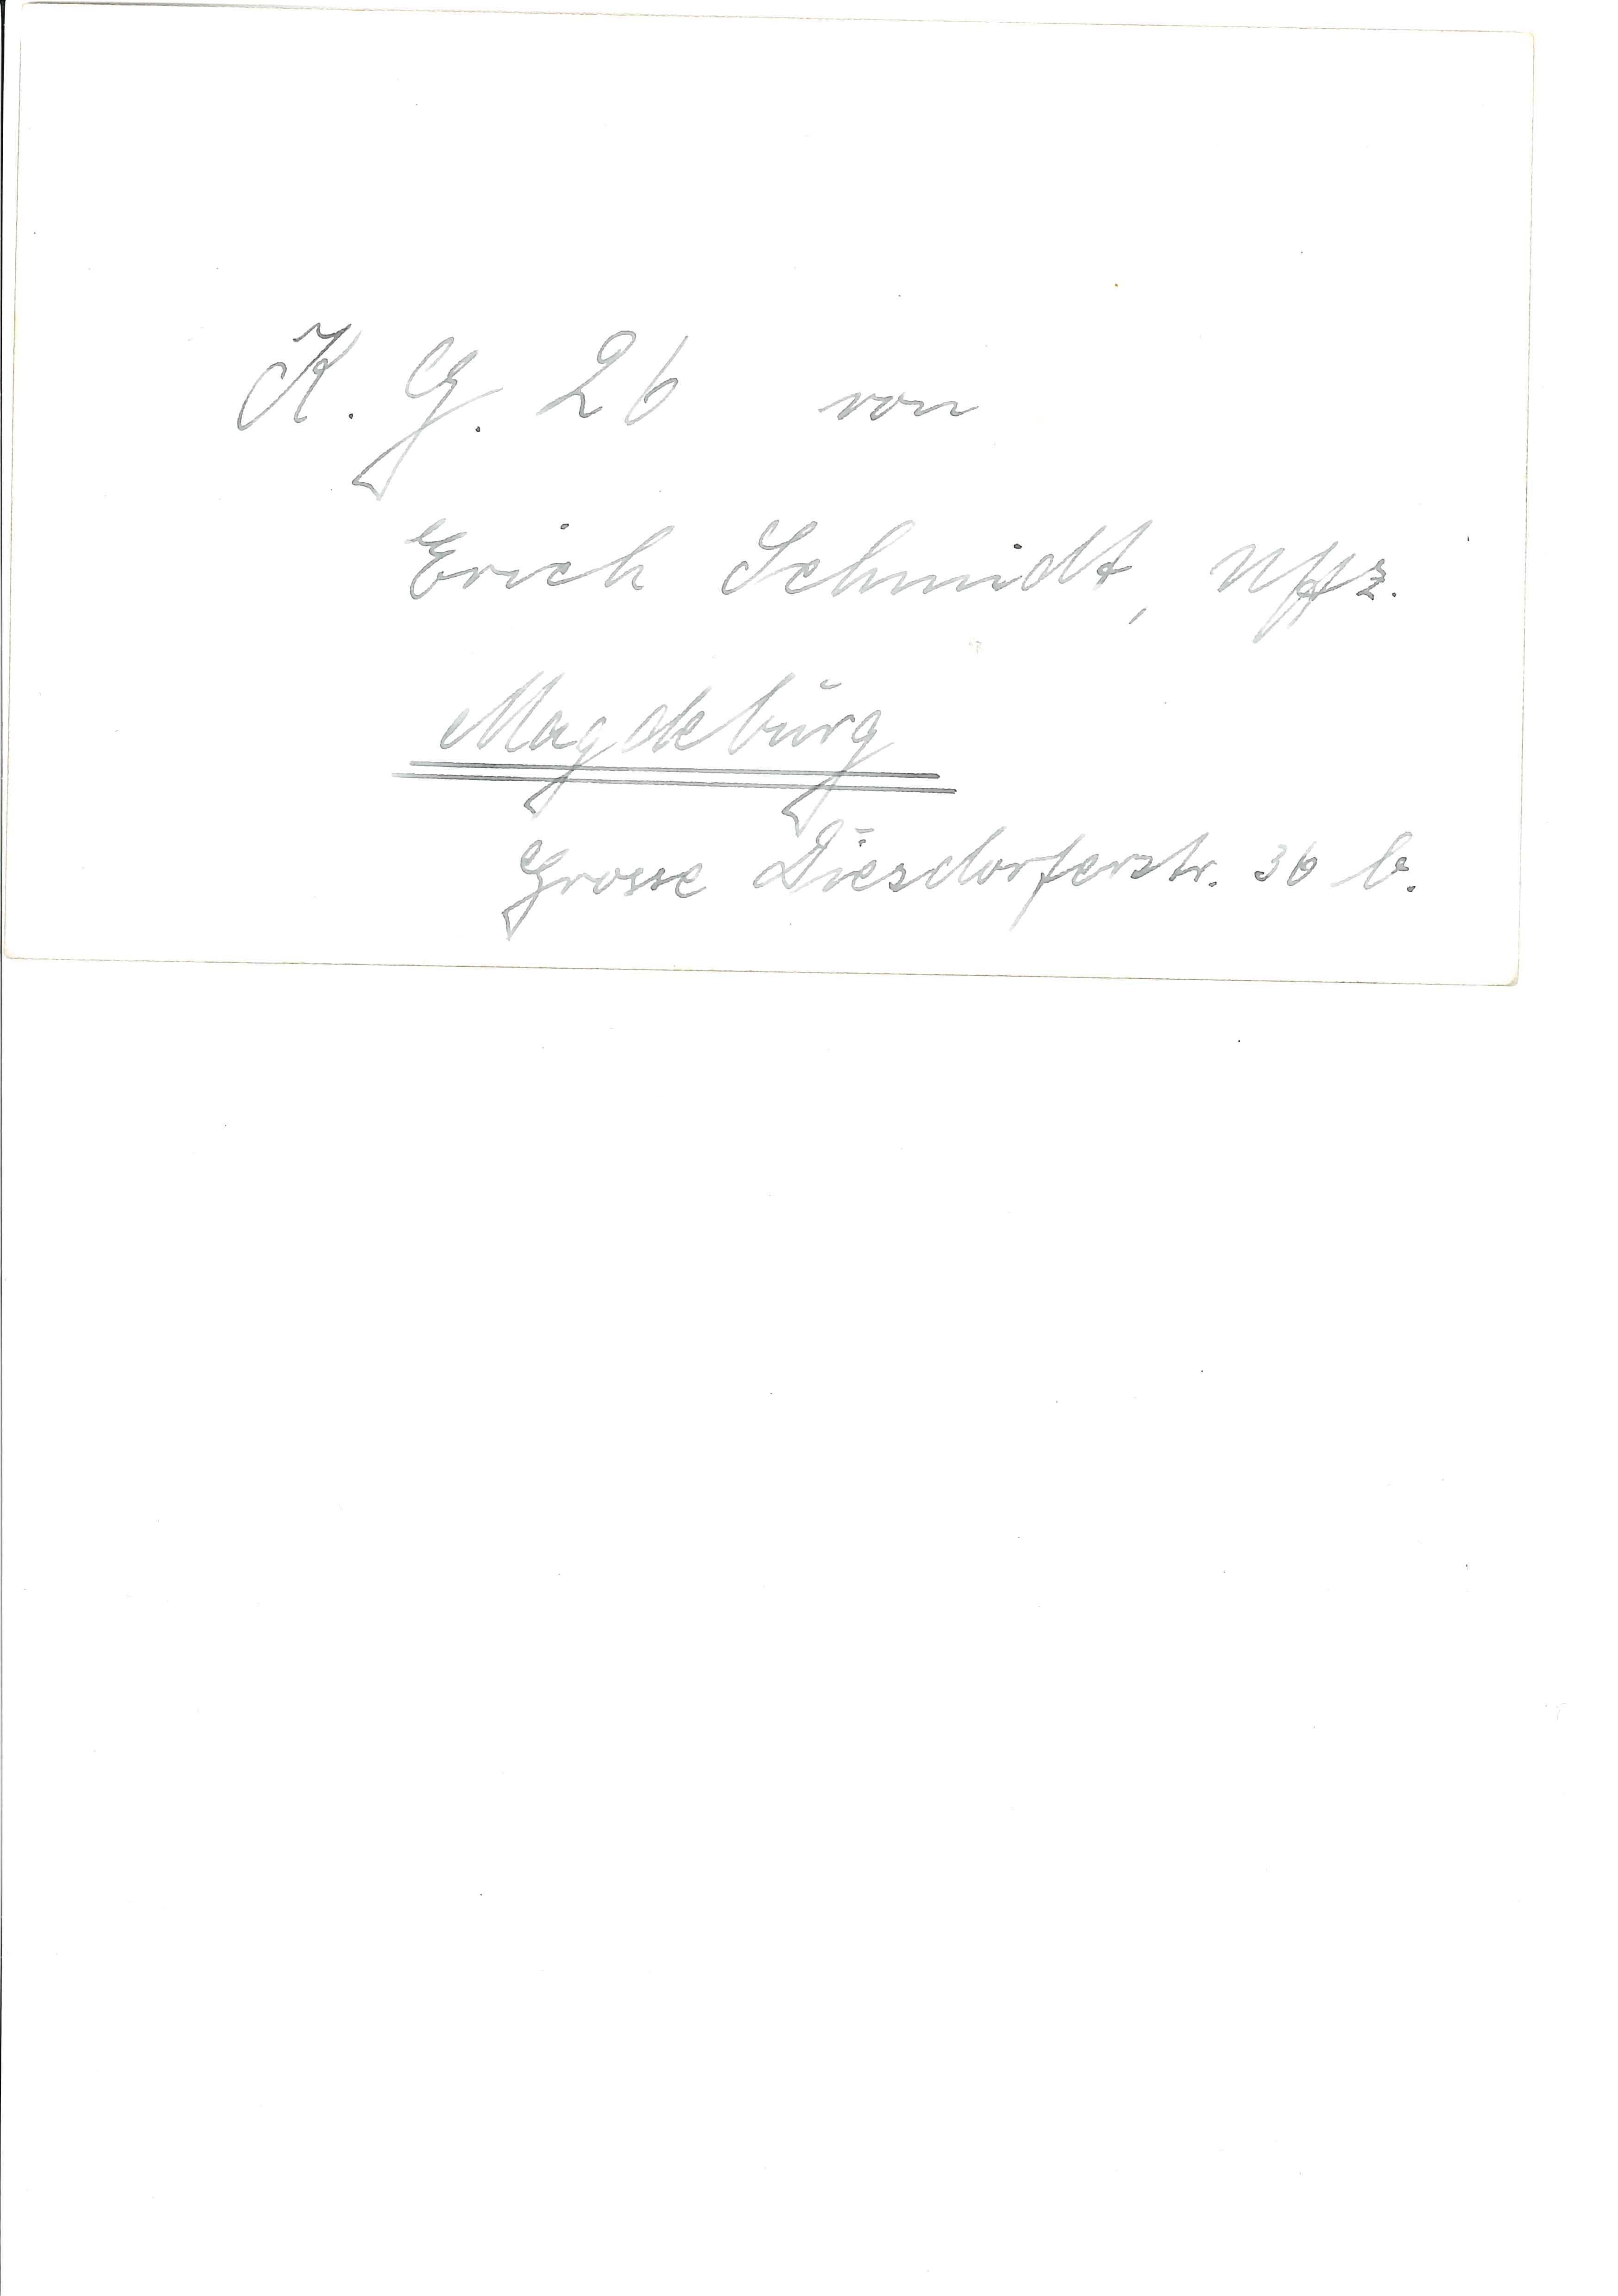 K. G. 26 von
Erich Schmidt, Uffz.
Magdeburg
Grosse Diesdorferstr. 36 b.